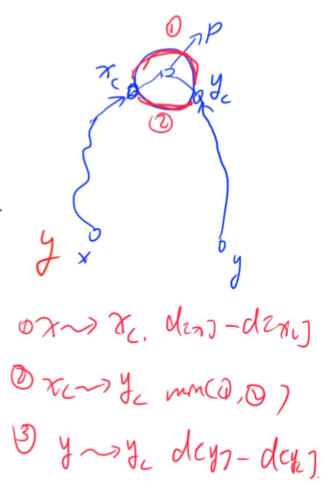 ① P
x_c y_c
②
y x y
① x⇝x_c, d[x]-d[x_c]
② x_c⇝y_c min(①,②)
③ y⇝y_c d[y]-d[y_c]